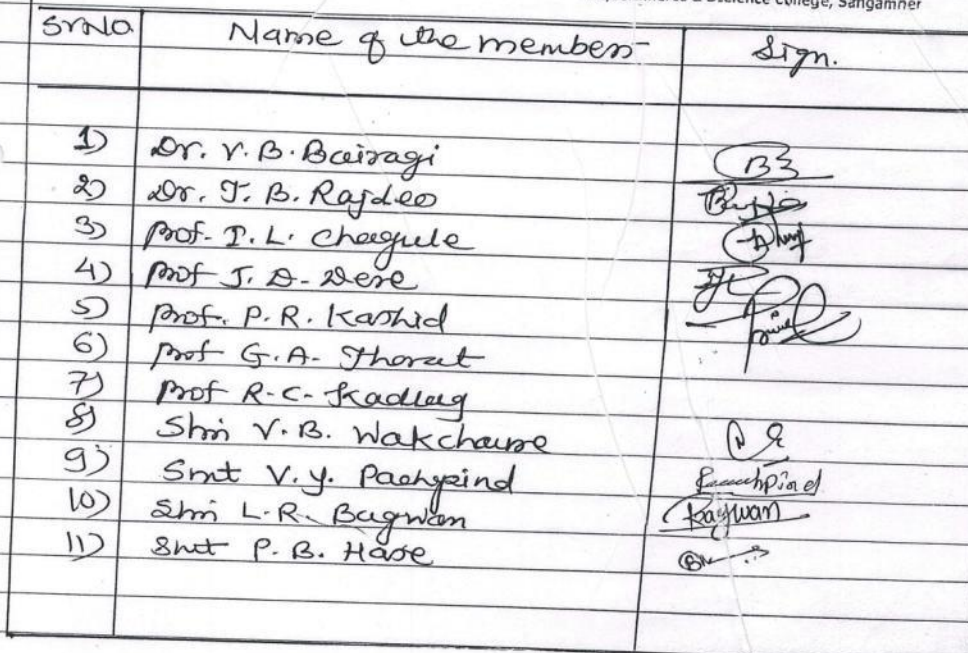 Science College, Sangamner
Sr.No. Name of the member Sign.
1) Dr. V. B. Bairagi
2) Dr. T. B. Rajdeo
3) Prof. I. L. Chaggule
4) Prof J. D. Dere
5) Prof. P. R. Kashid
6) Prof G. A. Thorat
7) Prof R. C. Kadlag
8) Shri V. B. Wakchaure
9) Smt V. Y. Pachpind
10) Shri L. R. Bagwan Bagwan
11) Smt P. B. Hase